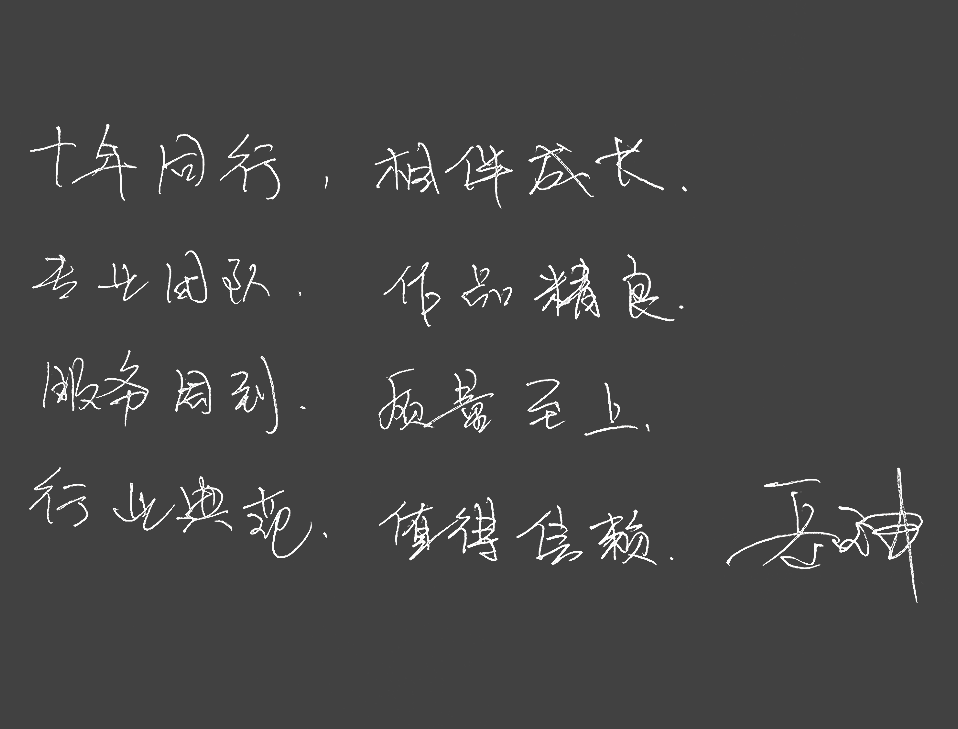 十年同行,相伴成长.
专业团队.作品精良.
服务周到.质量至上.
行业典范.值得信赖.